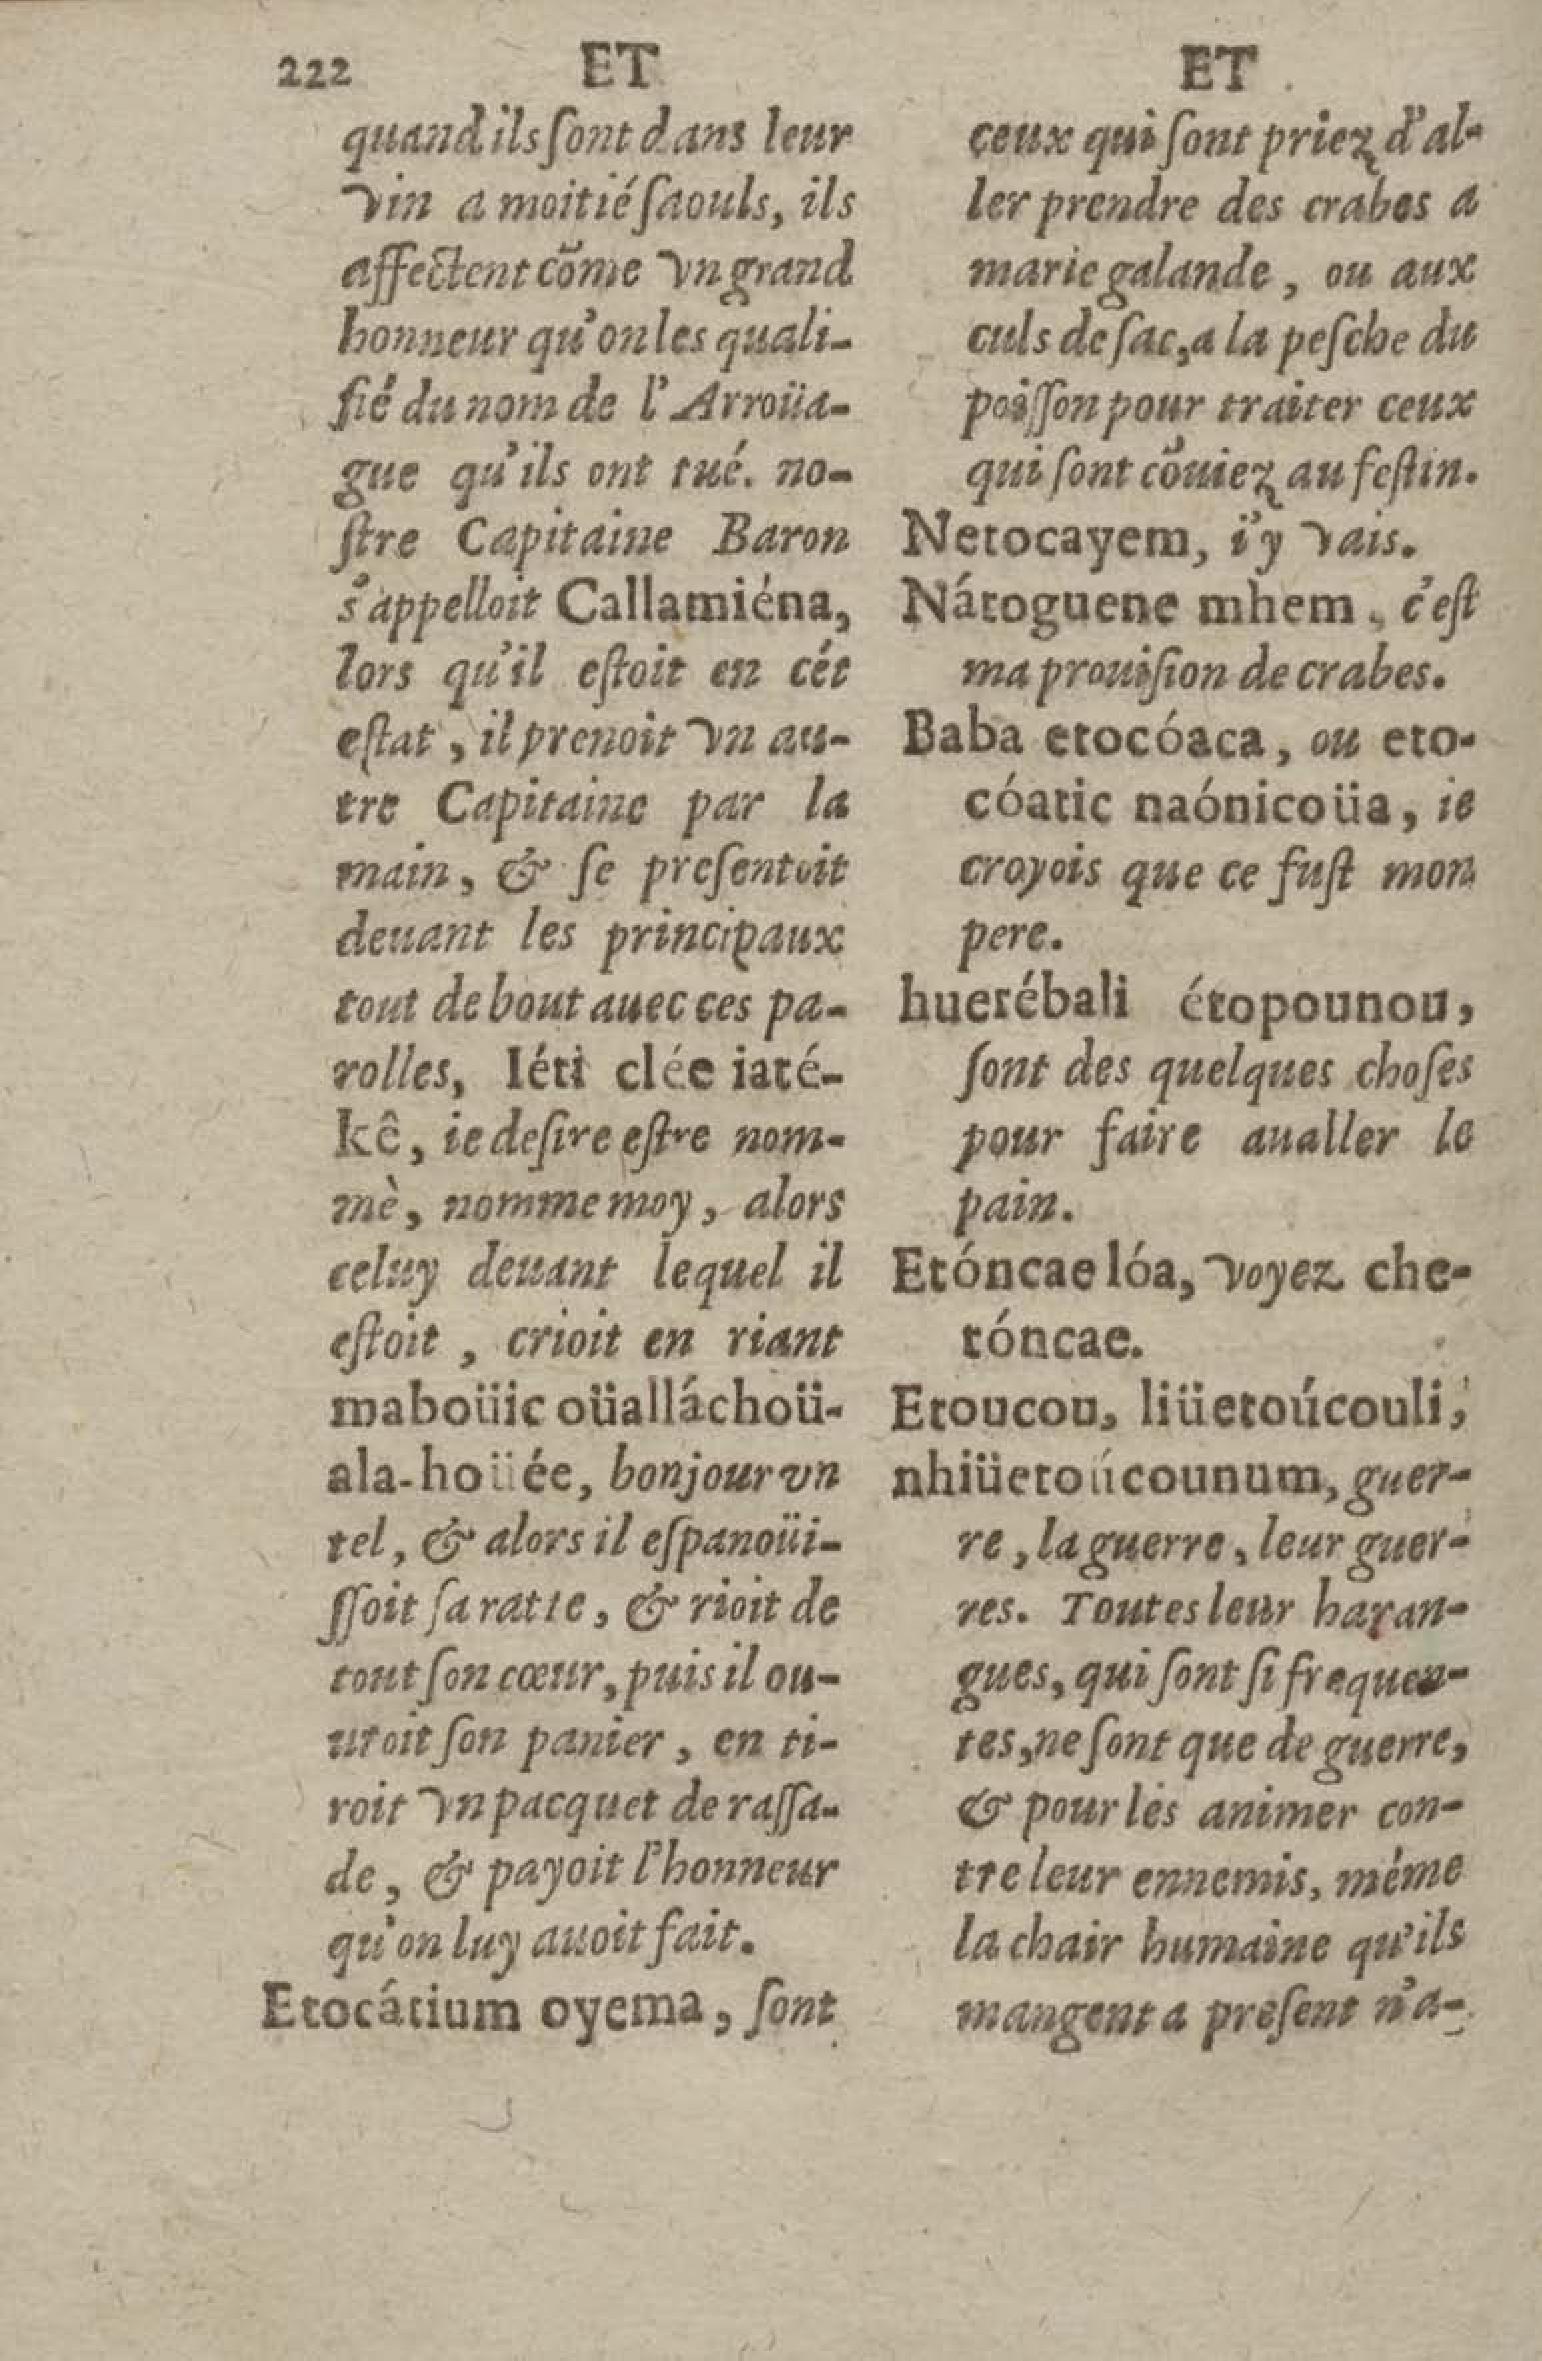 222 ET ET
quand ils ſont dans leur
vin a moitié ſaouls, ils
affectent cõme vn grand
honneur qu'on les quali-
fié du nom de l'Arroüa-
gue qu'ils ont tué. no-
ſtre Capitaine Baron
s'appelloit Callamiéna,
lors qu'il eſtoit en cét
eſtat, il prenoit vn au-
tre Capitaine par la
main, & ſe preſentoit
deuant les principaux
tout de bout auec ces pa-
rolles, Iéti clée iaté-
kê, ie deſire eſtre nom-
mè, nomme moy, alors
celuy deuant lequel il
eſtoit, crioit en riant
maboüic oüalláchoü-
ala-hoüée, bonjour vn
tel, & alors il eſpanoüi-
ſſoit ſa ratte, & rioit de
tout ſon cœur, puis il ou-
uroit ſon panier, en ti-
roit vn pacquet de raſſa-
de, & payoit l'honneur
qu'on luy auoit fait.
Etocátium oyema, ſont
ceux qui ſont priez d'al-
ler prendre des crabes a
marie galande, ou aux
culs de ſac, a la peſche du
poiſſon pour traiter ceux
qui ſont cõuiez au feſtin.
Netocayem, i'y vais.
Nátoguene mhem, c'eſt
ma prouiſion de crabes.
Baba etocóaca, ou eto-
cóatic naónicoüa, ie
croyois que ce fuſt mon
pere.
huerébali étopounou,
ſont des quelques choſes
pour faire aualler le
pain.
Etóncae lóa, voyez che-
tóncae.
Etoucou, liüetoúcouli,
nhiüetoúcounum, guer-
re, la guerre, leur guer-
res. Toutes leur haran-
gues, qui ſont ſi frequen-
tes, ne ſont que de guerre,
& pour les animer con-
tre leur ennemis, méme
la chair humaine qu'ils
mangent a preſent n'a-